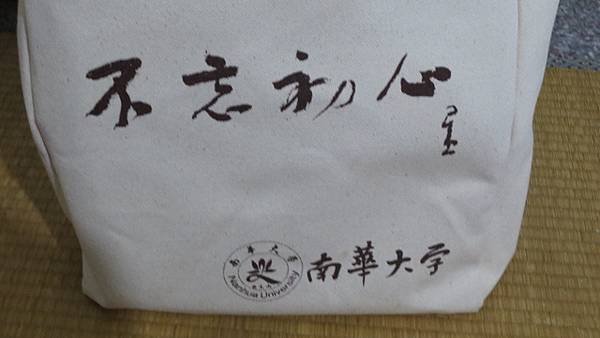 不忘初心
南華大学
南華大學
Nanhua University